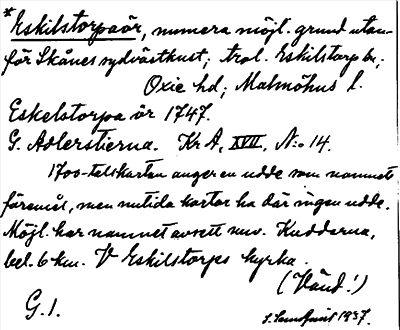 * Eskilstorpaör, numera möjl. grund utan-
för Skånes sydvästkust; trol. Eskilstorp by,
Oxie hd; Malmöhus l.
Eskelstorpa ör 1747.
G. Adlerstierna. Kr A, XVII, N:o 14.
1700-talskartan anger en udde som namnets
föremål, men nutida kartor ha där ingen udde.
Möjl. har namnet avsett nuv. Kuddarna,
bel. 6 km. V Eskilstorps kyrka.
(Vänd!)
G. 1.
1937.